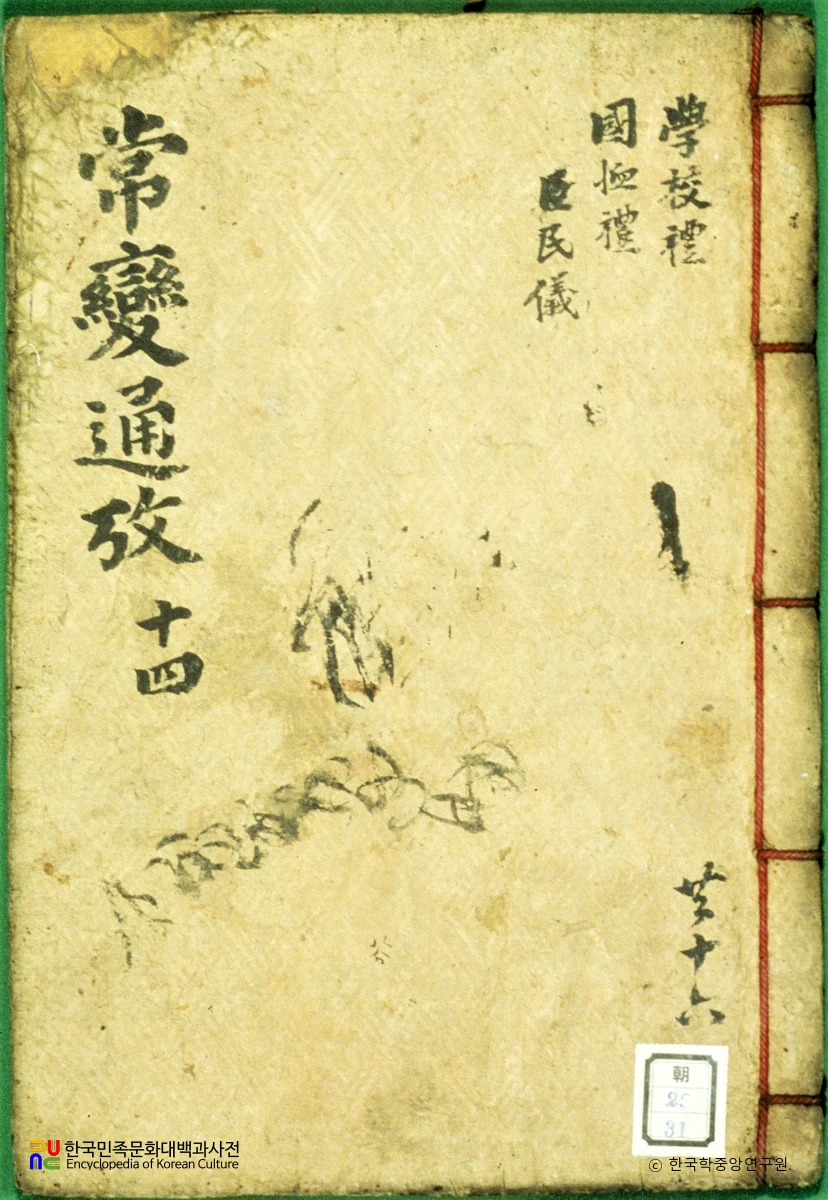 學校禮
國恤禮
臣民儀
共十六
常變通攷 十四
朝
31
한국민족문화대백과사전
Encyclopedia of Korean Culture
© 한국학중앙연구원